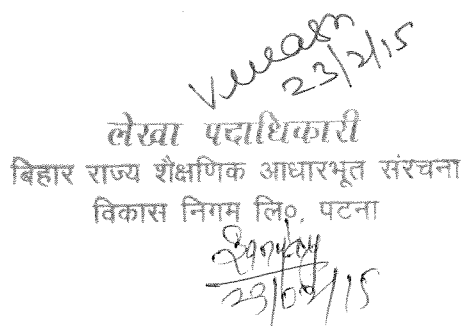 23/2/15
लेखा पदाधिकारी
बिहार राज्य शैक्षणिक आधारभूत संरचना
विकास निगम लि०, पटना
23/02/15